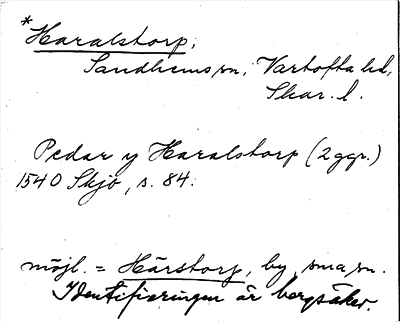 *Haralstorp,
Sandhems sn, Vartofta hd,
Skar. l.
Pedar y Haralstorp (2 ggr.)
1540 Skjö, s. 84.
möjl. = Härstorp, by, sma sn.
Identifieringen är bergsäker.